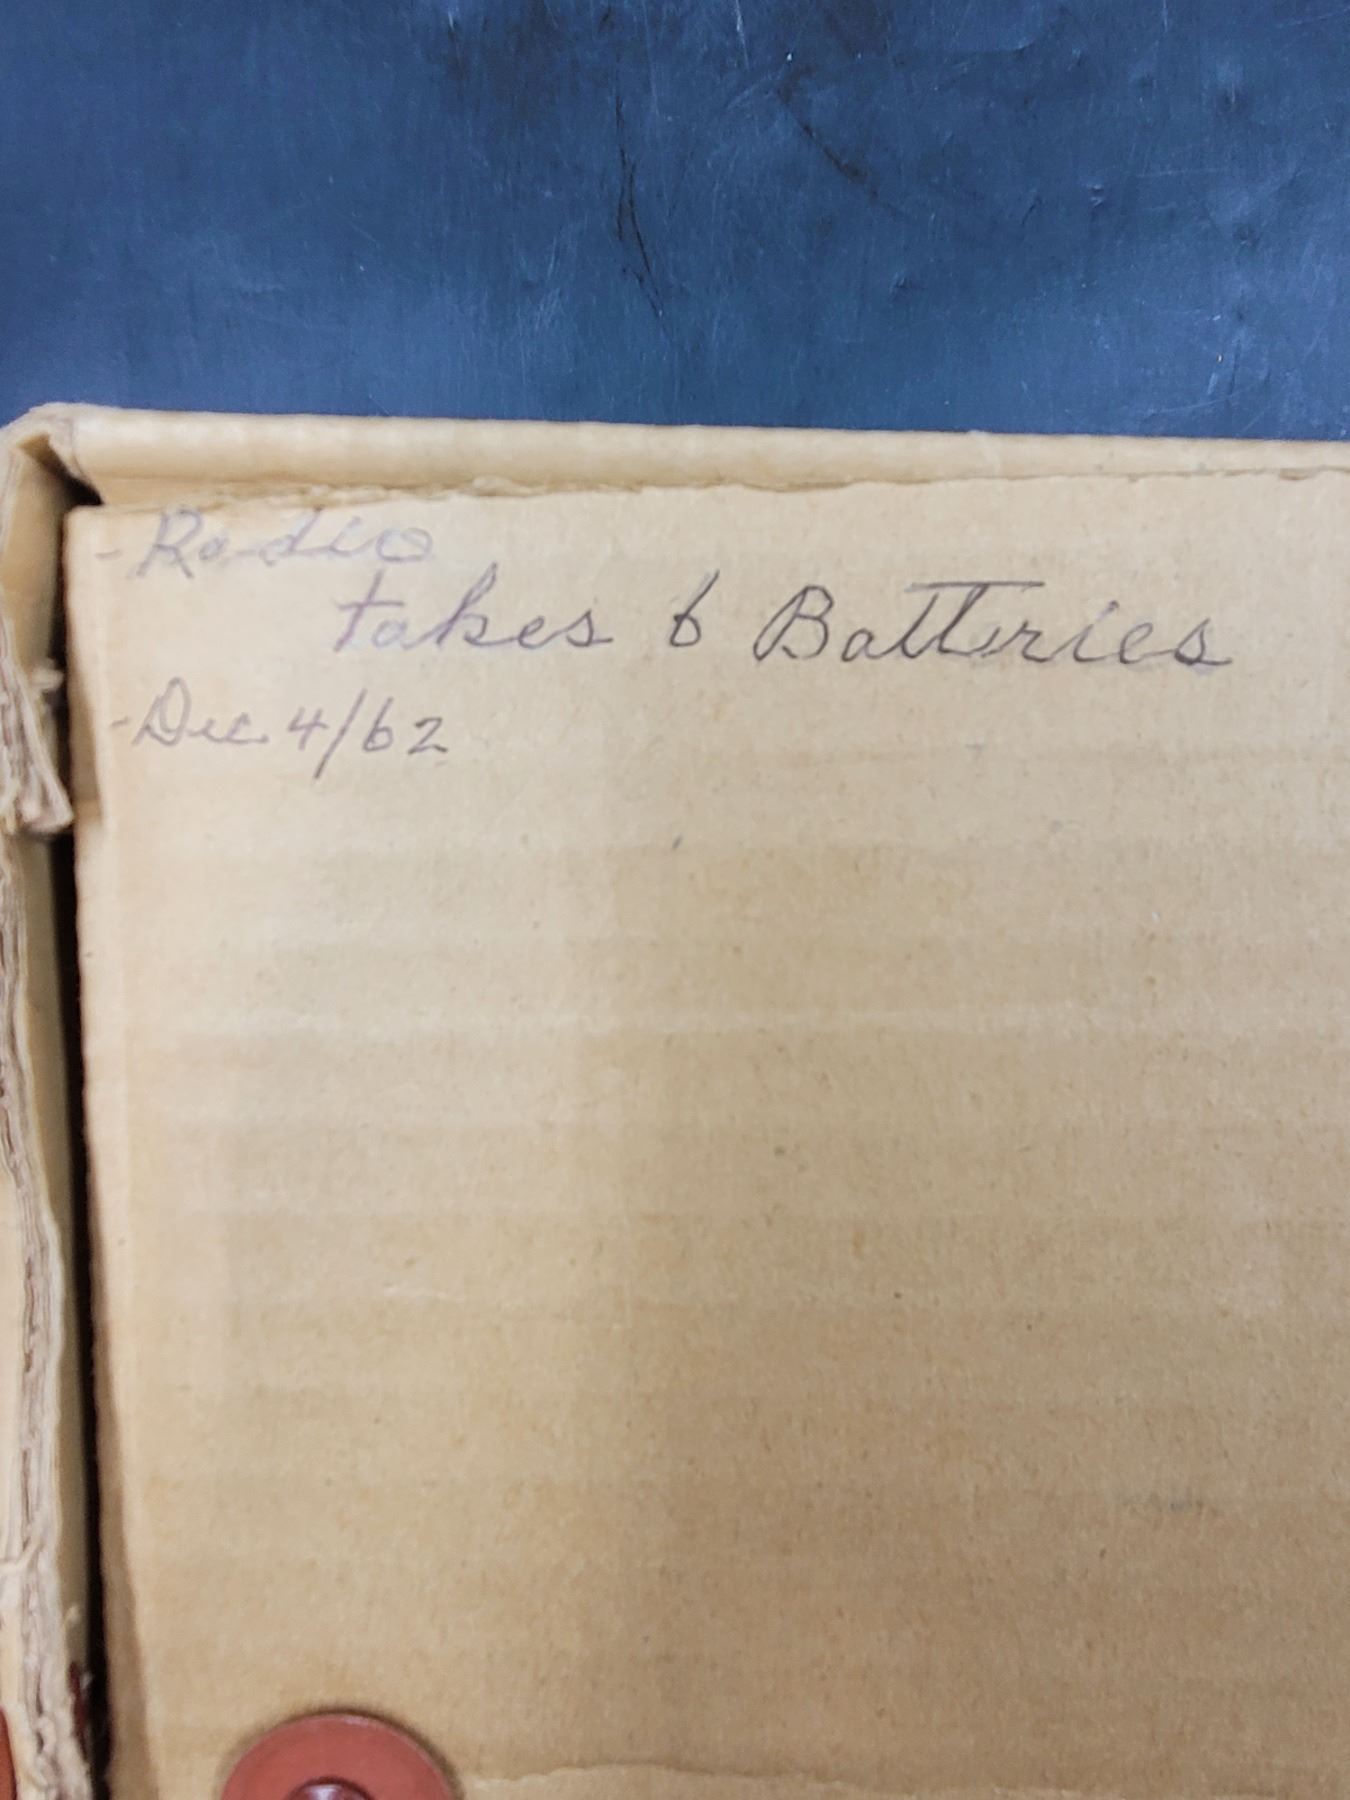 - Radio
takes 6 Batteries
- Dec 4/62